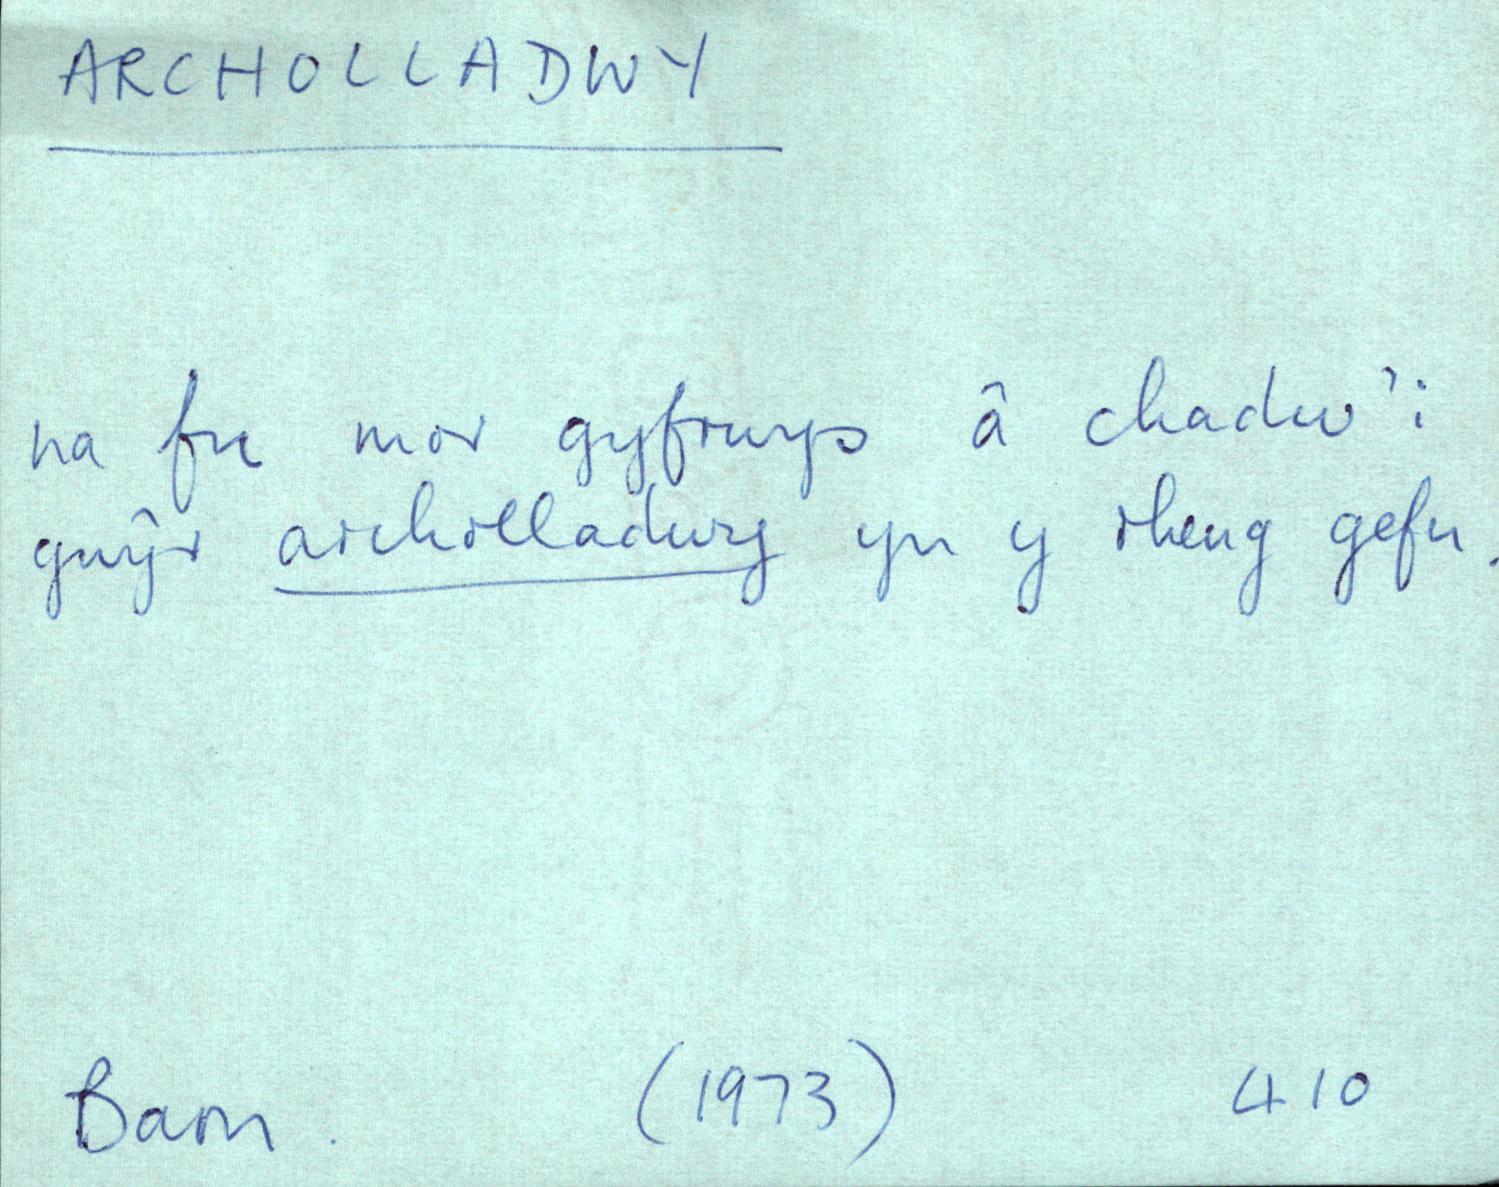 ARCHOLLADWY
na fu mor gyfrwys â chadw'i
gwŷr archolladwy yn y rheng gefn.
Barn. (1973) 410